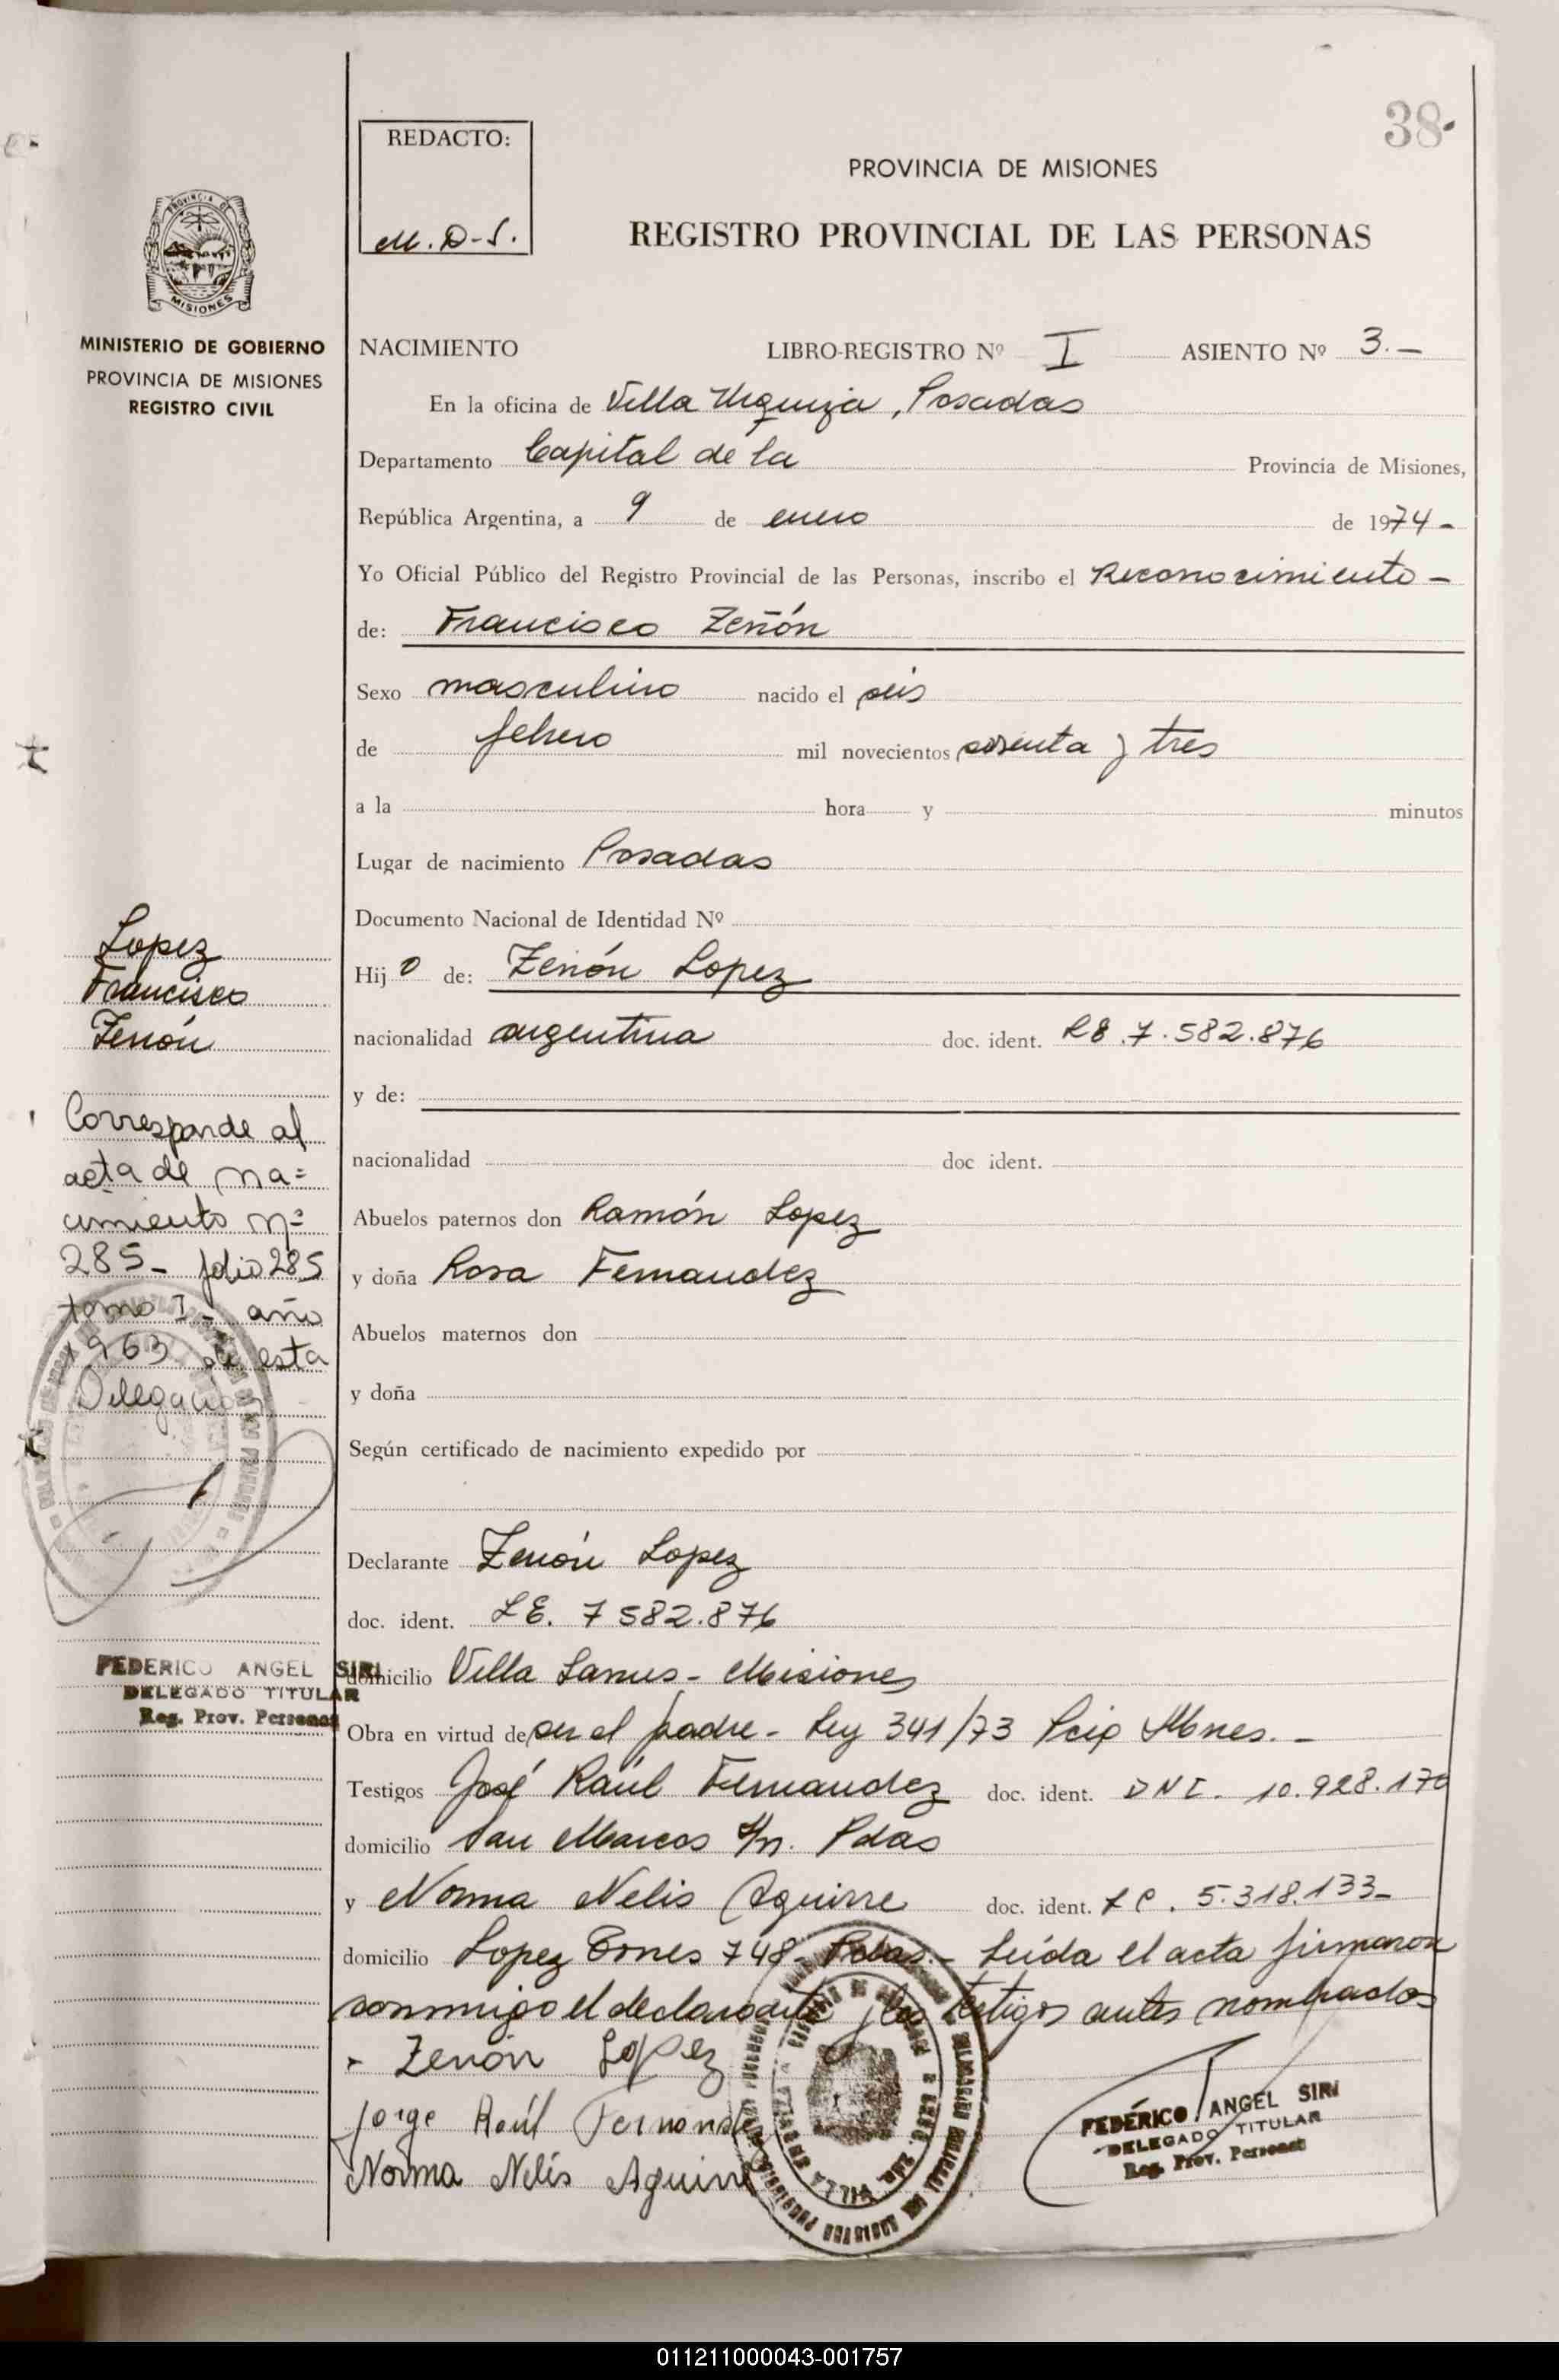 38-
REDACTO:
M. D-S.
PROVINCIA DE MISIONES
REGISTRO PROVINCIAL DE LAS PERSONAS
PROVINCIA DE
MISIONES
MINISTERIO DE GOBIERNO
PROVINCIA DE MISIONES
REGISTRO CIVIL
NACIMIENTO LIBRO-REGISTRO Nº I ASIENTO Nº 3.-
En la oficina de Villa Urquiza, Posadas
Departamento Capital de la Provincia de Misiones,
República Argentina, a 9 de enero de 1974-
Yo Oficial Público del Registro Provincial de las Personas, inscribo el Reconocimiento-
de: Francisco Zenón
Sexo masculino nacido el seis
de febrero mil novecientos sesenta y tres
a la hora y minutos
Lugar de nacimiento Posadas
Documento Nacional de Identidad Nº
Hijo de: Zenón Lopez
nacionalidad argentina doc. ident. 7.582.876
y de:
nacionalidad doc ident.
Abuelos paternos don Ramón Lopez
y doña Rosa Fernandez
Abuelos maternos don
y doña
Según certificado de nacimiento expedido por
Declarante Zenón Lopez
doc. ident. LE. 7582.876
domicilio Villa Lanus- Misiones
Obra en virtud de ser el padre- Ley 341/73 Mnes.-
Testigos José Raúl Fernandez doc. ident. DNI. 10.928.170
domicilio San Marcos S/n. Pdas
y Norma Nelis Aguirre doc. ident. LC. 5.318.133-
domicilio Lopez Torres 748- Pdas.- Leída el acta firmaron
conmigo el declarante y los testigos antes nombrados
- Zenón Lopez
Jorge Raúl Fernandez
Norma Nelis Aguirre
FEDERICO ANGEL SIRI
DELEGADO TITULAR
Reg. Prov. Personas
Lopez
Francisco
Zenón
Corresponde al
acta de na=
cimiento nº
285- folio 285
tomo I- año
1963 de esta
Delegación
FEDERICO ANGEL SIRI
DELEGADO TITULAR
Reg. Prov. Personas
011211000043-001757